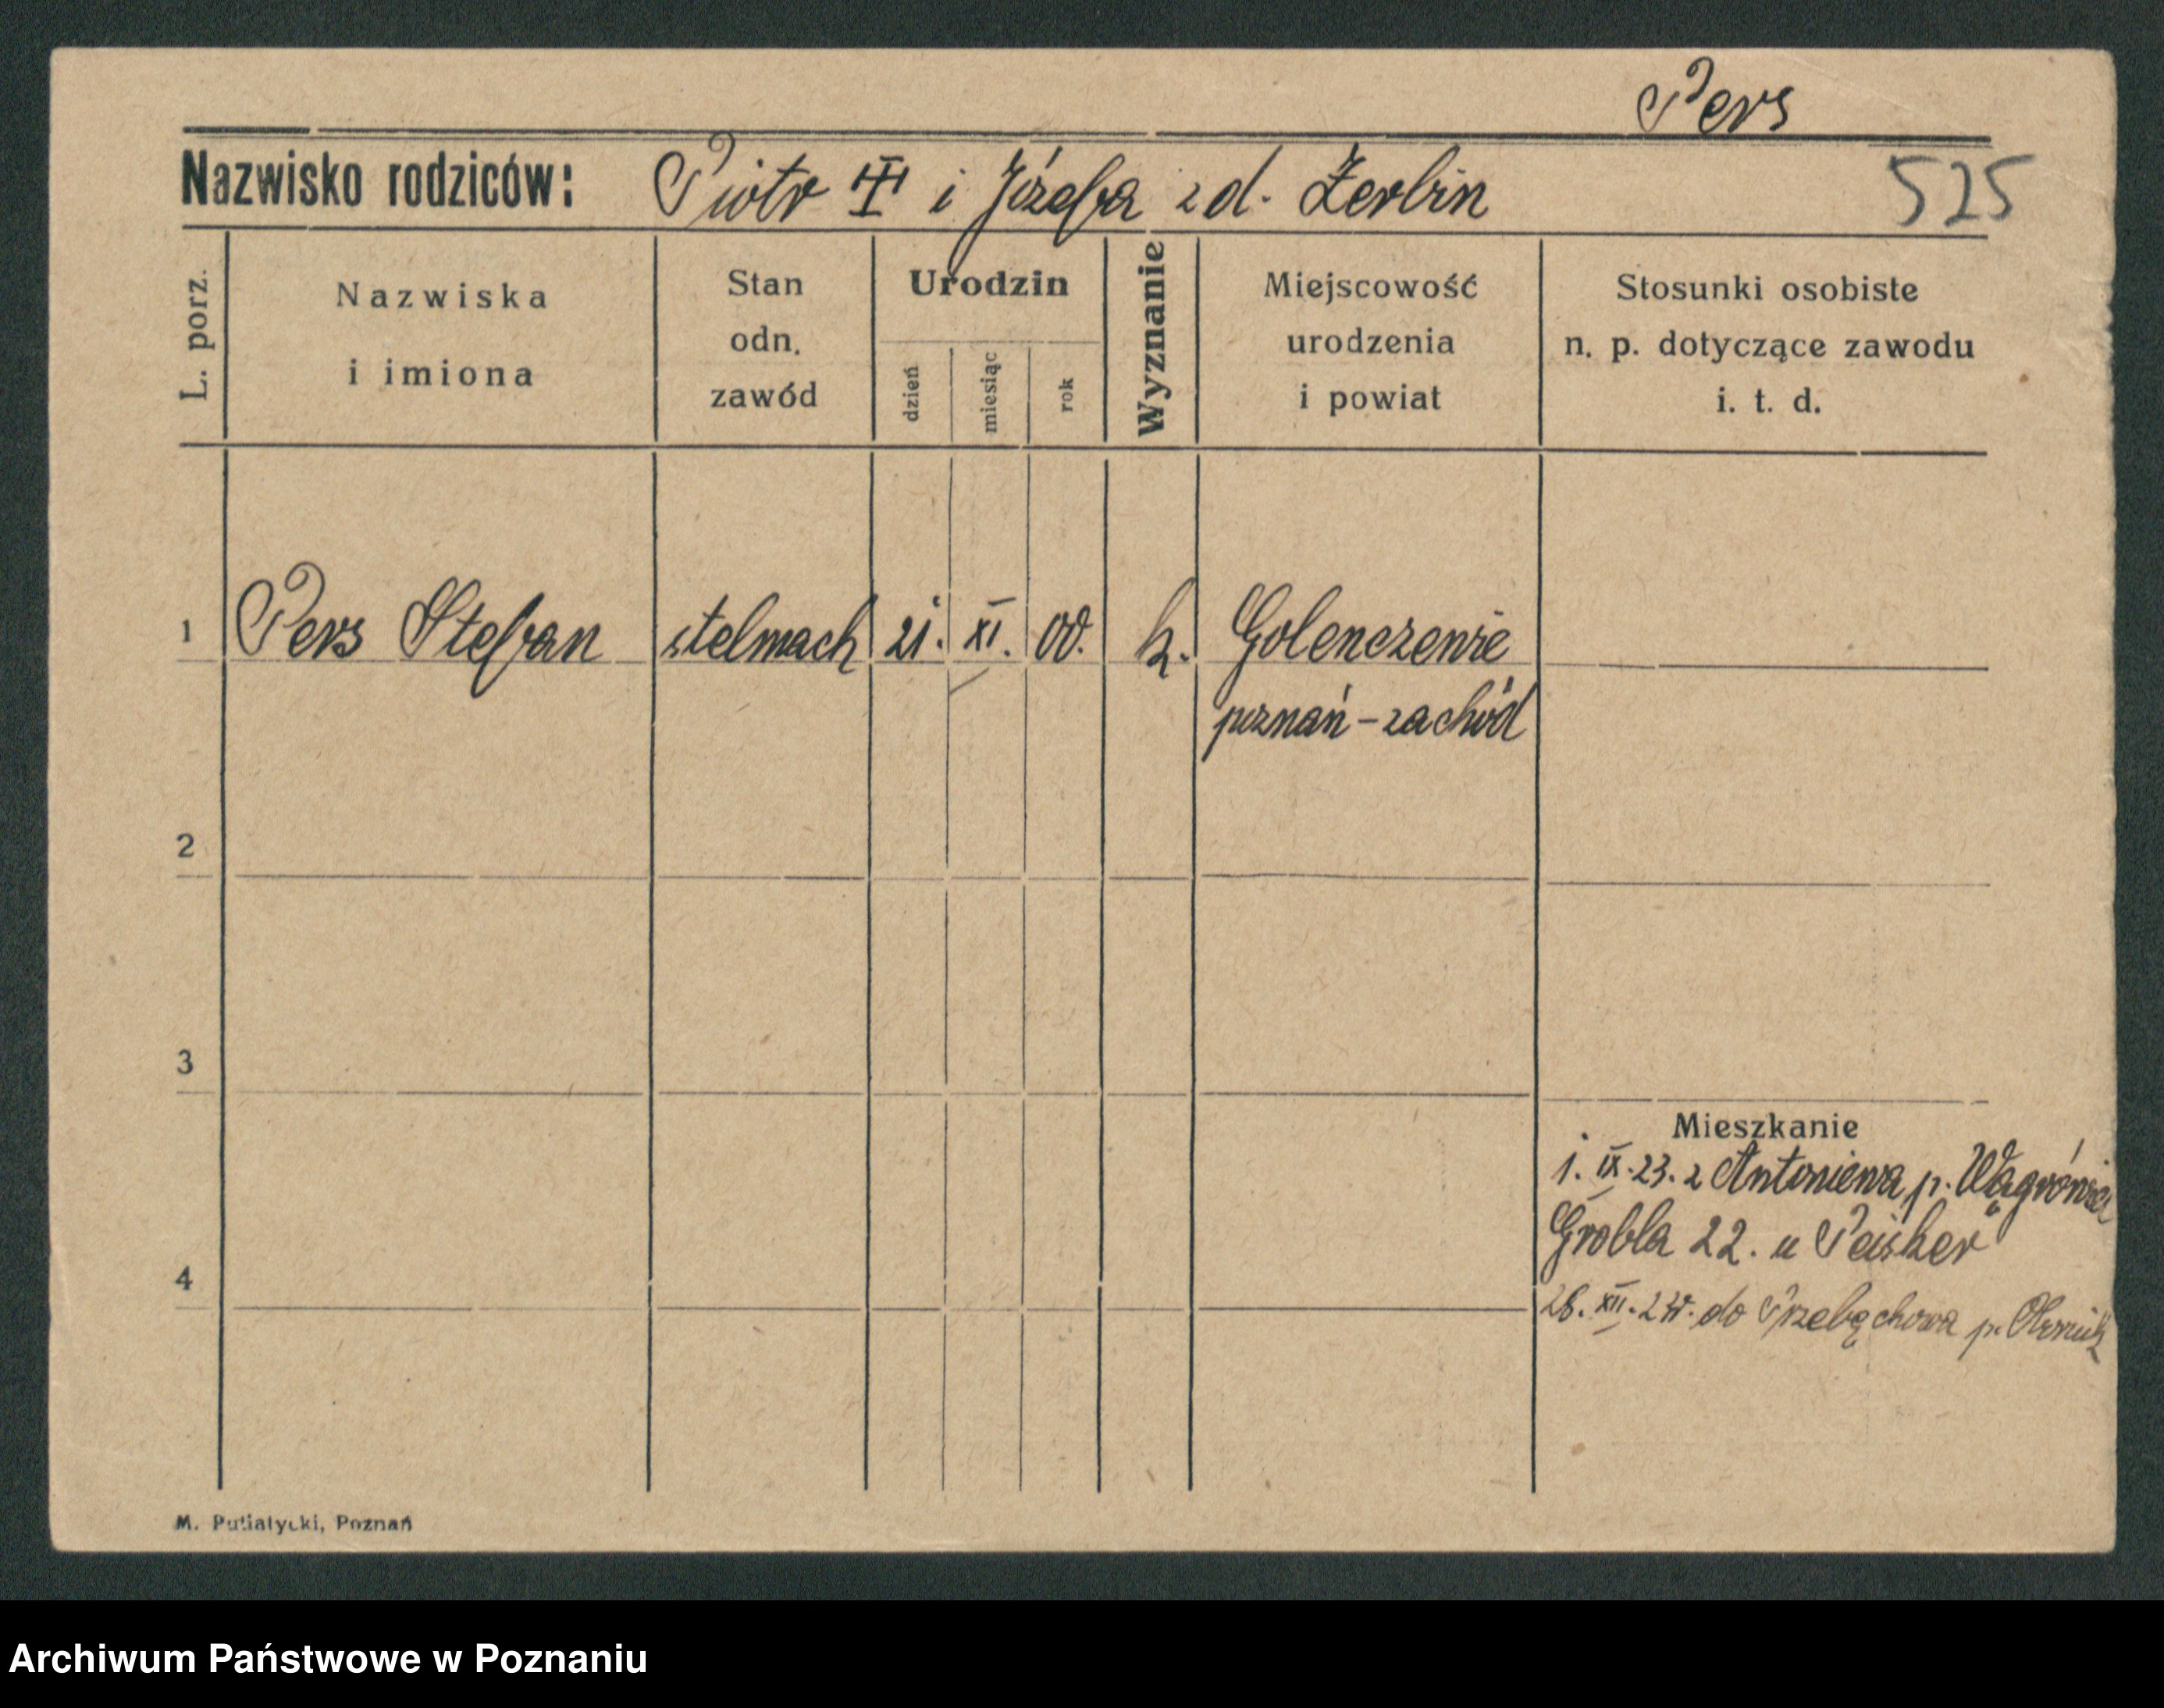 Pers
Nazwisko rodziców: Piotr i Józefa zd. Żerbin
525
L. porz.
Nazwiska
i imiona
Stan
odn.
zawód
Urodzin
dzień
miesiąc
rok
Wyznanie
Miejscowość
urodzenia
i powiat
Stosunki osobiste
n. p. dotyczące zawodu
i. t. d.
1 Pers Stefan stelmach 21. XI. 00. k. Golenczewie
poznań-zachód
2
3
Mieszkanie
1. IX. 23. z Antoniewa p. Wągrówiec
Grobla 22. u Peisker
4
28. XII. 24. do Przebęchowa p.
M. Putiatycki, Poznań
Archiwum Państwowe w Poznaniu